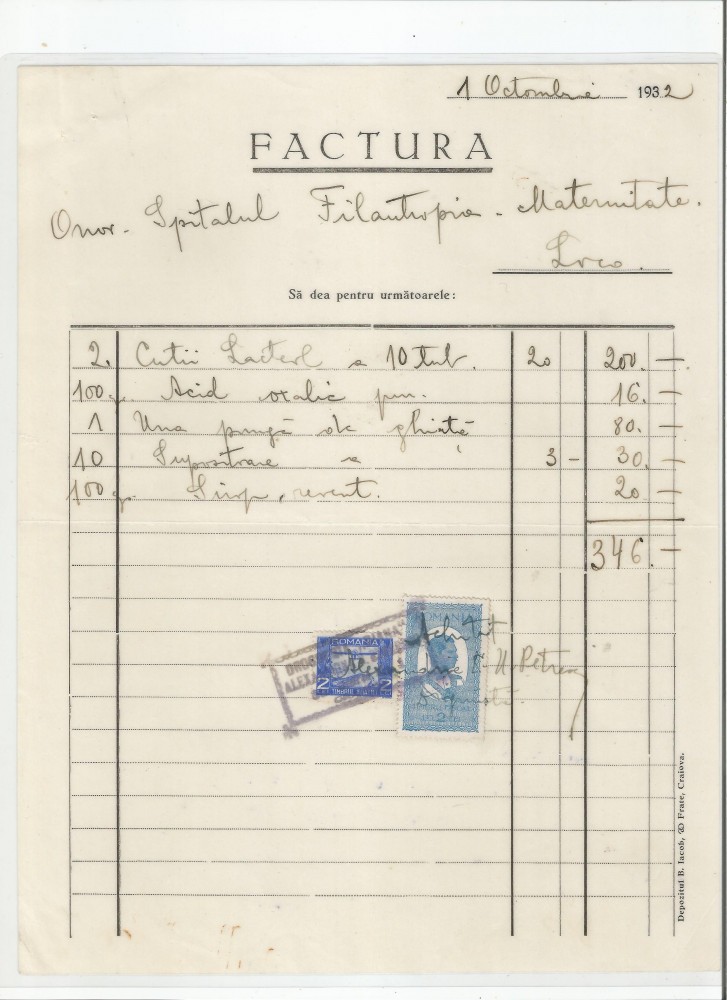 1 Octombrie 1932
FACTURA
Onor. Spitalul Filantropia - Maternitate.
Loco.
Să dea pentru următoarele:
2. Cutii Lacterol a 10 tub. 20 200. —
100 gr. Acid oxalic pur. 16. —
1 Una pungă de ghiață 80. —
10 Supozitoare a 3 - 30. —
100 gr. Sirop. 20 —
346. —
Achitat
ROMANIA
ROMANIA
2 2
ALEXA
Petrescu
Depozitul B. Iacob, & Frate, Craiova.